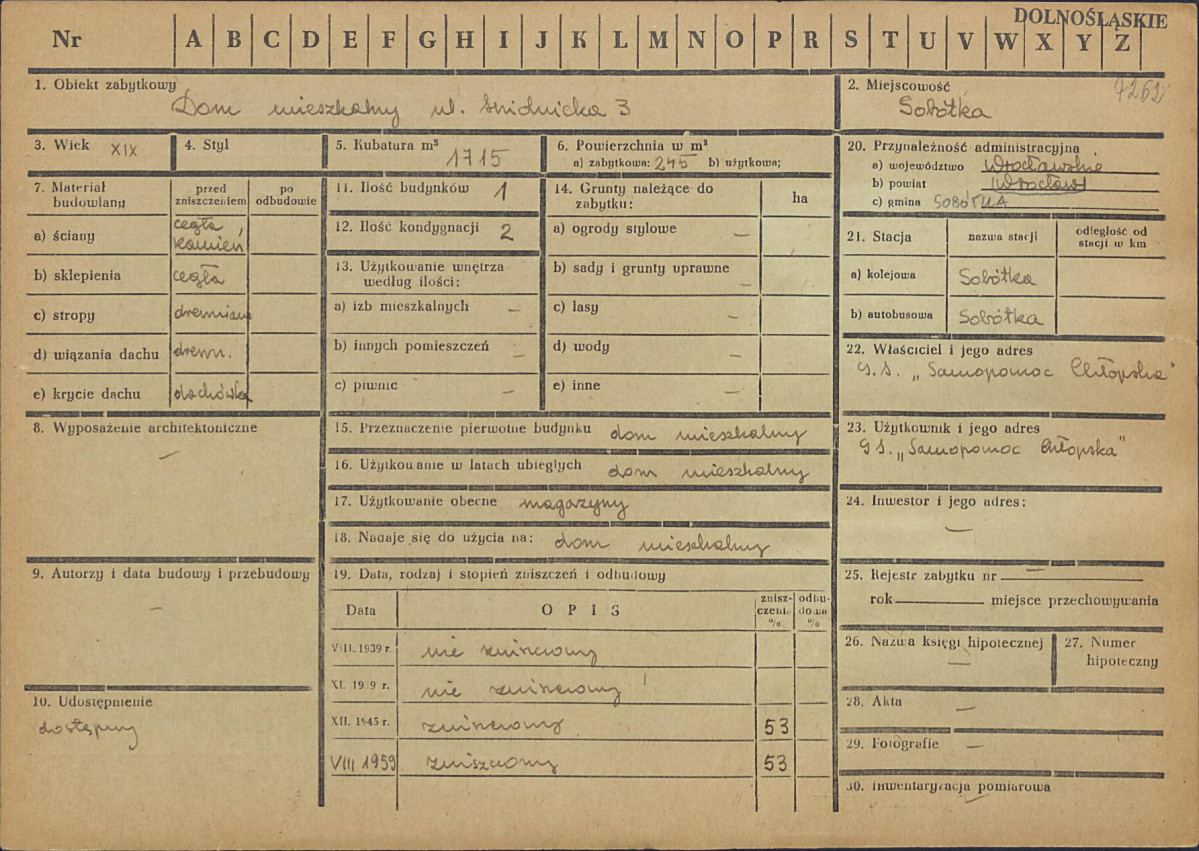 DOLNOŚLĄSKIE
Nr A B C D E F G H I J K L M N O P R S T U V W X Y Z
1. Obiekt zabytkowy
Dom mieszkalny ul. Świdnicka 3
2. Miejscowość
Sobótka
3. Wiek XIX
4. Styl
5. Kubatura m³
1715
6. Powierzchnia w m²
a) zabytkowa: 245 b) użytkowa;
7. Materiał budowlany
przed zniszczeniem
po odbudowie
a) ściany
cegła, kamień
b) sklepienia cegła
c) stropy drewniane
d) wiązania dachu drewn.
e) krycie dachu dachówka
8. Wyposażenie architektoniczne
—
9. Autorzy i data budowy i przebudowy
—
10. Udostępnienie
dostępny
11. Ilość budynków 1
12. Ilość kondygnacji 2
13. Użytkowanie wnętrza
według ilości:
a) izb mieszkalnych —
b) innych pomieszczeń —
c) piwnic —
14. Grunty należące do
zabytku:
ha
a) ogrody stylowe —
b) sady i grunty uprawne —
c) lasy —
d) wody —
e) inne —
15. Przeznaczenie pierwotne budynku dom mieszkalny
16. Użytkowanie w latach ubiegłych dom mieszkalny
17. Użytkowanie obecne magazyny
18. Nadaje się do użycia na: dom mieszkalny
19. Data, rodzaj i stopień zniszczeń i odbudowy
Data
OPIS
znisz-
czenia
%
odbu-
dowa
%
VIII. 1939 r. nie zniszczony
XI. 1939 r. nie zniszczony
XII. 1945 r. zniszczony 53
VIII 1959 zniszczony 53
20. Przynależność administracyjna
a) województwo wrocławskie
b) powiat Wrocław
c) gmina SOBÓTKA
21. Stacja
nazwa stacji
odległość od
stacji w km
a) kolejowa Sobótka
b) autobusowa Sobótka
22. Właściciel i jego adres
G.S. „Samopomoc Chłopska"
23. Użytkownik i jego adres
G S. „Samopomoc Chłopska"
24. Inwestor i jego adres:
—
25. Rejestr zabytku nr —
rok miejsce przechowywania
26. Nazwa księgi hipotecznej
—
27. Numer
hipoteczny
28. Akta —
29. Fotografie —
30. Inwentaryzacja pomiarowa